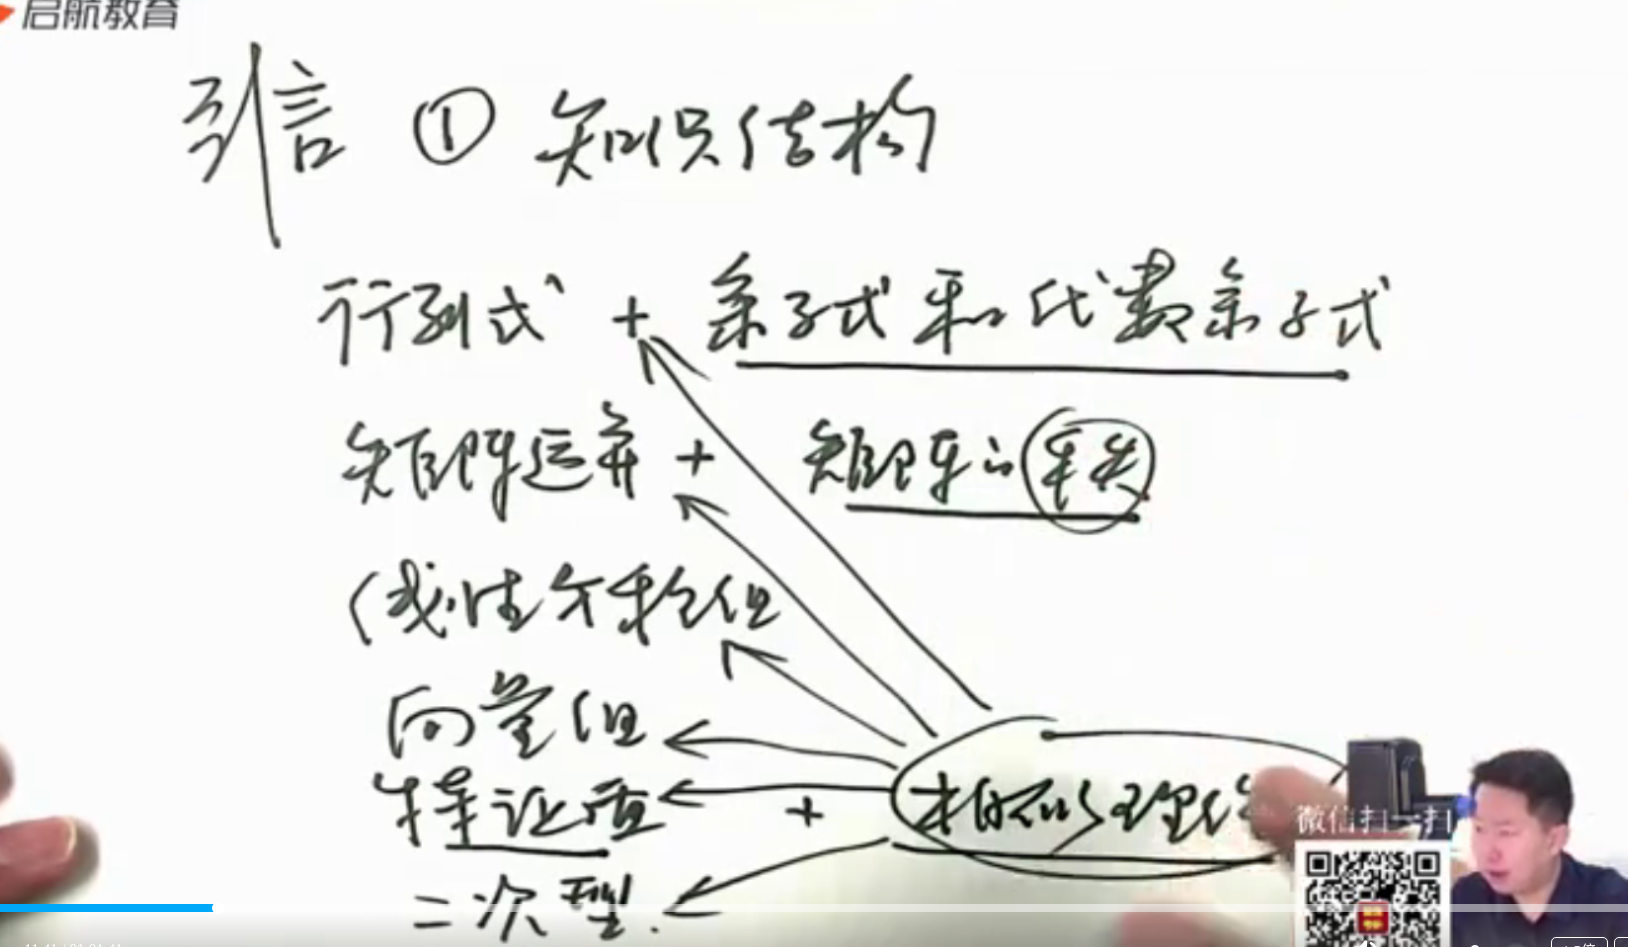 启航教育
引言 ① 知识结构
行列式 + 余子式和代数余子式
矩阵运算 + 矩阵的秩
线性方程组
向量组
特征值 + 相似理论
二次型.
微信扫一扫